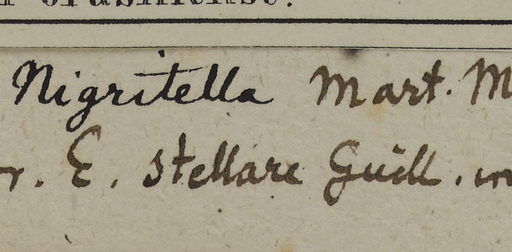 Nigritella Mart. M
r. E. stellare Guill. in